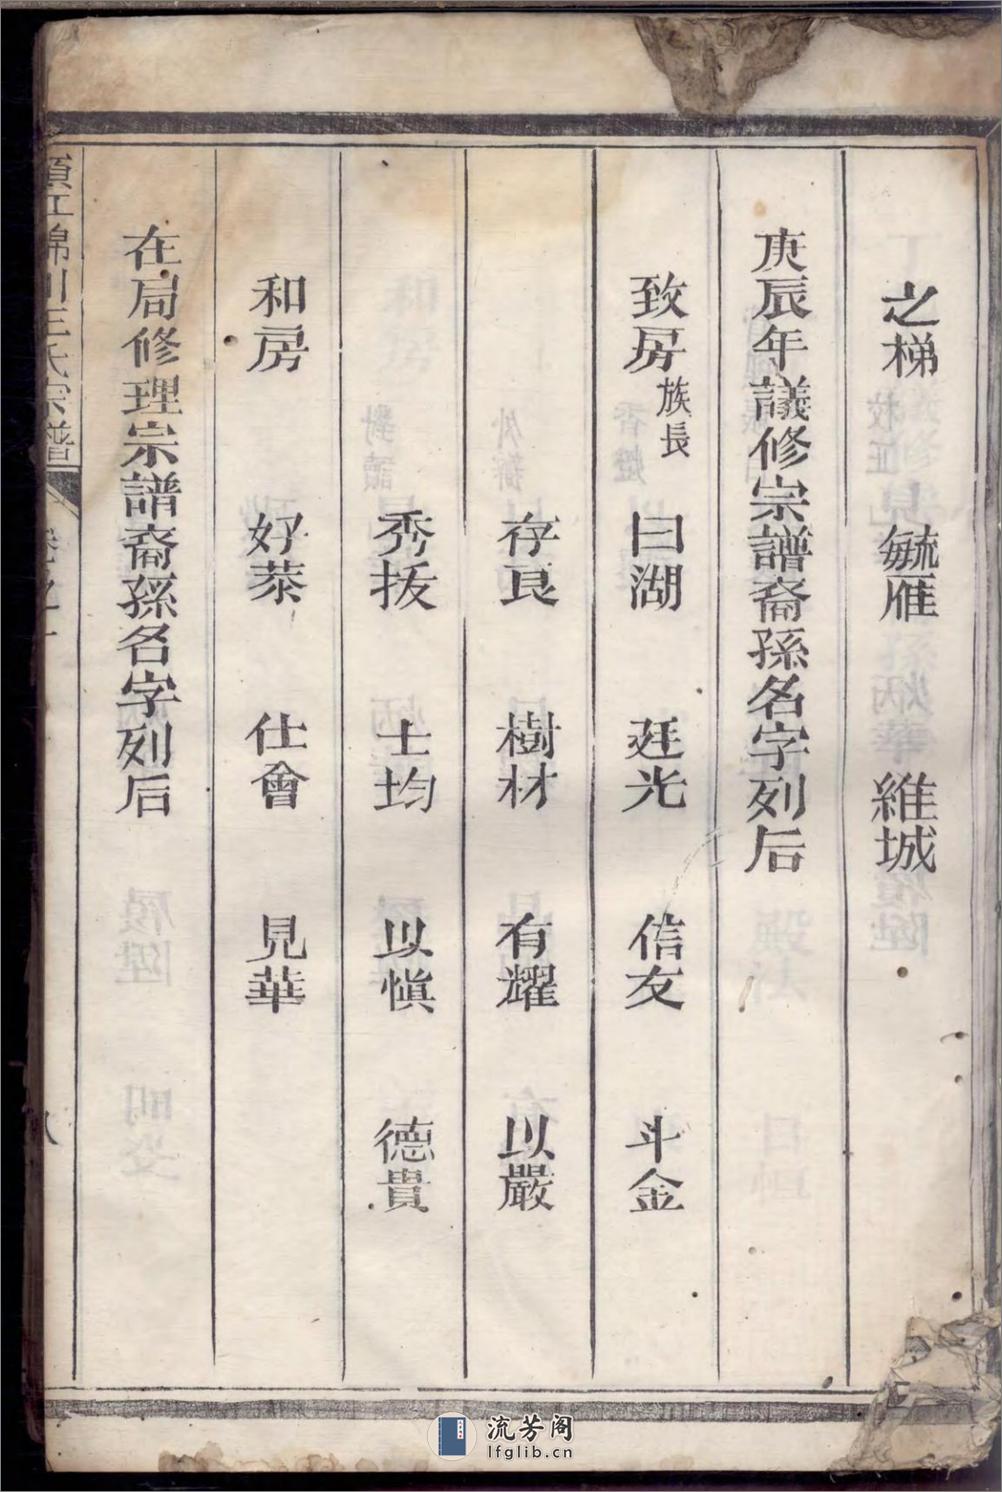 之梯 毓雁 維城
庚辰年議修宗譜裔孫名字列后
致房 族長 曰湖 廷光 信友 斗金
存良 樹材 有耀 以嚴
秀拔 士均 以愼 德貴
和房 好恭 仕會 見華
在局修理宗譜裔孫名字列后
錦川王氏宗譜 卷之一 八
流芳阁
lfglib.cn